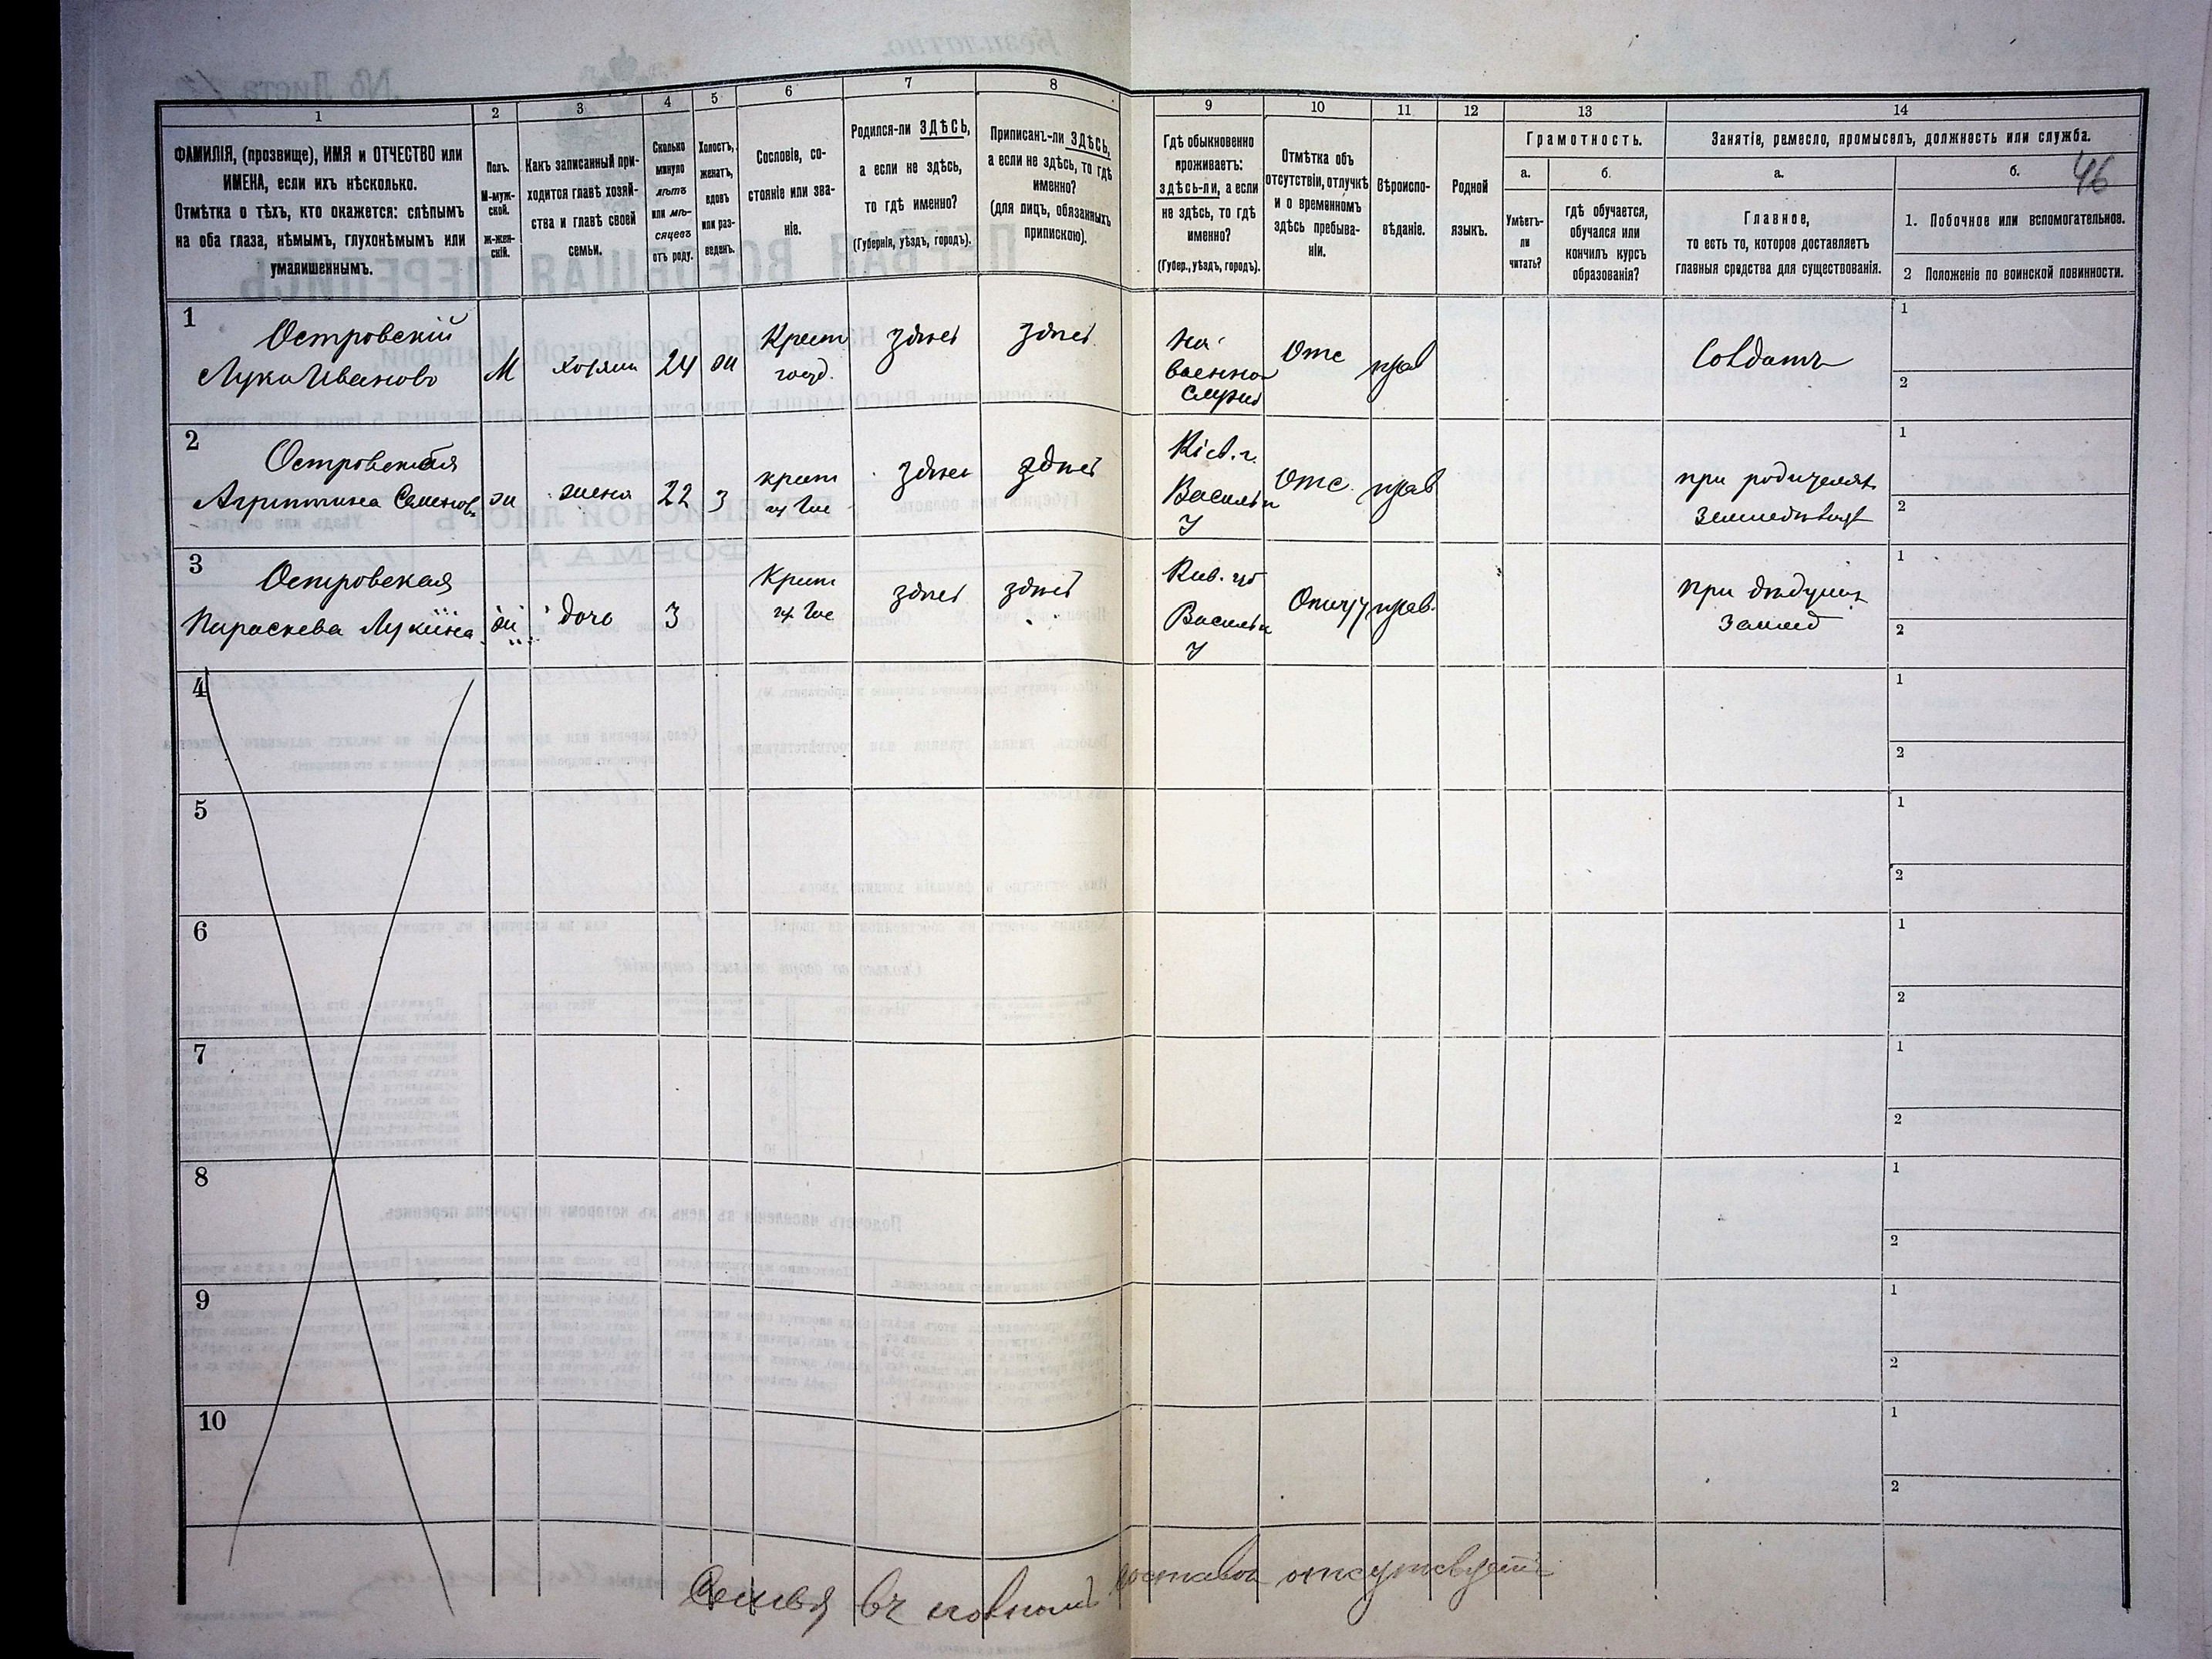 46
1
2
3
4
5
6
7
8
9
10
11
12
13
14
ФАМИЛІЯ, (прозвище), ИМЯ и ОТЧЕСТВО или
ИМЕНА, если ихъ нѣсколько.
Отмѣтка о тѣхъ, кто окажется: слѣпымъ
на оба глаза, нѣмымъ, глухонѣмымъ или
умалишеннымъ.
Полъ.
М-муж-
ской.
ж-жен-
скій.
Какъ записанный при-
ходится главѣ хозяй-
ства и главѣ своей
семьи.
Сколько
минуло
лѣтъ
или мѣ-
сяцевъ
отъ роду.
Холостъ,
женатъ,
вдовъ
или раз-
веденъ.
Сословіе, со-
стояніе или зва-
ніе.
Родился-ли ЗДѢСЬ,
а если не здѣсь,
то гдѣ именно?
(Губернія, уѣздъ, городъ).
Приписанъ-ли ЗДѢСЬ,
а если не здѣсь, то гдѣ
именно?
(для лицъ, обязанныхъ
припискою).
Гдѣ обыкновенно
проживаетъ:
здѣсь-ли, а если
не здѣсь, то гдѣ
именно?
(Губер., уѣздъ, городъ).
Отмѣтка объ
отсутствіи, отлучкѣ
и о временномъ
здѣсь пребыва-
ніи.
Вѣроиспо-
вѣданіе.
Родной
языкъ.
Грамотность.
а.
б.
Умѣетъ-
ли
читать?
гдѣ обучается,
обучался или
кончилъ курсъ
образованія?
Занятіе, ремесло, промыселъ, должность или служба.
а.
б.
Главное,
то есть то, которое доставляетъ
главныя средства для существованія.
1. Побочное или вспомогательное.
2 Положеніе по воинской повинности.
1
Островскій
Лука Иваново
М
хозяин
24
ж
Крест
здѣсь
здѣсь
На
военной
Служб
Отс
прав
Солдатъ
1
2
2
Островская
Агриппина Семенов.
ж
жена
22
З
крест
здѣсь
здѣсь
Кіев. г.
Васильк
У
Отс
прав
при родителях
1
2
3
Островская
Параскева Лукина
ж
дочь
3
Крест
здѣсь
здѣсь
Киев. губ
Васильк
У
прав.
При дѣдушк
1
2
4
1
2
5
1
2
6
1
2
7
1
2
8
1
2
9
1
2
10
1
2
Семья въ полномъ составѣ отсутсвуетъ